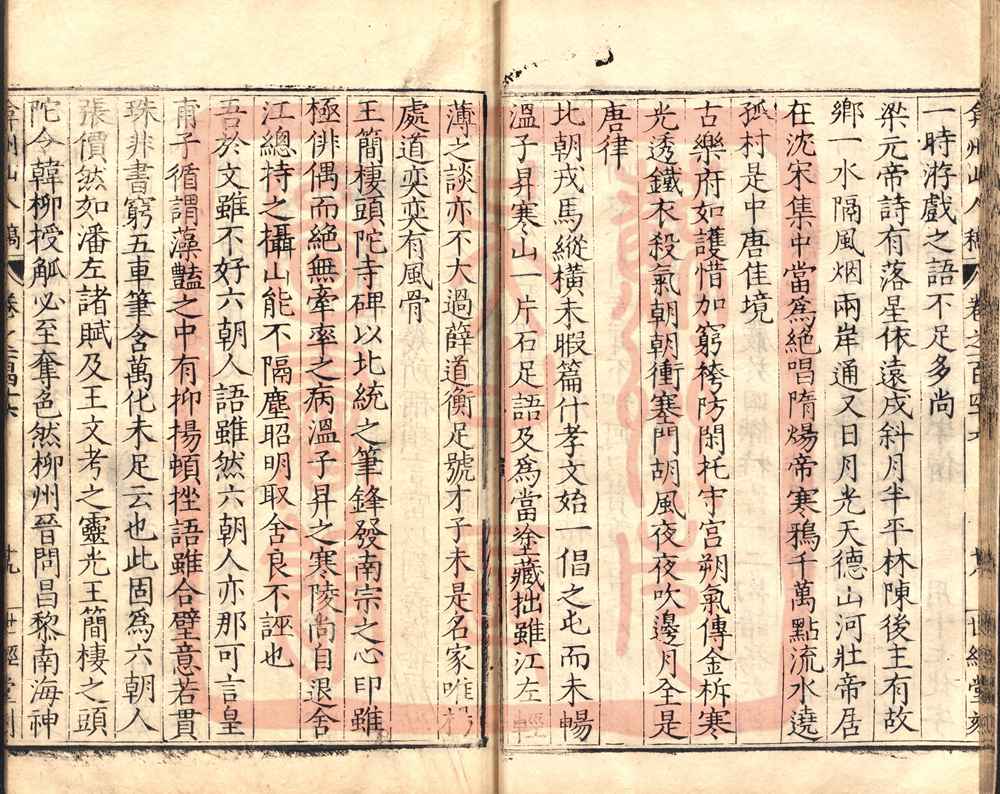 弇州山人稿 卷之一百四十六 世經堂刻
一時游戲之語不足多尚
梁元帝詩有落星依遠戍斜月半平林陳後主有故
鄉一水隔風烟兩岸通又日月光天德山河壯帝居
在沈宋集中當爲絕唱隋煬帝寒鴉千萬點流水遶
孤村是中唐佳境
古樂府如護惜加窮袴防閑托守宮朔氣傳金柝寒
光透鐵衣殺氣朝朝衝塞門胡風夜夜吹邊月全是
唐律
北朝戎馬縱橫未暇篇什孝文始一倡之屯而未暢
溫子昇寒山一片石足語及爲當塗藏拙雖江左輕
薄之談亦不大過薛道衡足號才子未是名家唯楊
處道奕奕有風骨
王簡棲頭陀寺碑以北統之筆鋒發南宗之心印雖
極俳偶而絕無牽率之病溫子昇之寒陵尚自退舍
江總持之攝山能不隔塵昭明取舍良不誣也
吾於文雖不好六朝人語雖然六朝人亦那可言皇
甫子循謂藻豔之中有抑揚頓挫語雖合璧意若貫
珠非書窮五車筆含萬化未足云也此固爲六朝人
張價然如潘左諸賦及王文考之靈光王簡棲之頭
陀令韓柳授觚必至奪色然柳州晉問昌黎南海神
弇州山人稿 卷之一百四十六 十九 世經堂刻